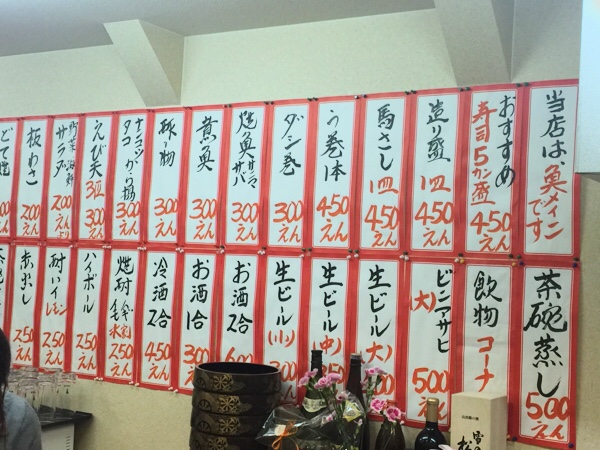 当店は、魚メインです
おすすめ
寿司5カン盛
450えん
造り盛
一皿
450えん
馬さし
一皿
450えん
う巻1本
450えん
ダシ巻
300えん
焼魚 サンマ サバ
300えん
煮魚
300えん
酢の物
300えん
300えん
えび天
3ヶ
300えん
サラダ
200えん
板わさ
200えん
茶碗蒸し
500えん
飲物
コーナー
ビンアサヒ
(大)
500えん
生ビール
(大)
生ビール
(中)
生ビール
(小)
300
お酒2合
600
お酒1合
300
冷酒2合
450えん
焼酎
250えん
ハイボール
250えん
酎ハイ
レモン
250えん
赤出し
250えん